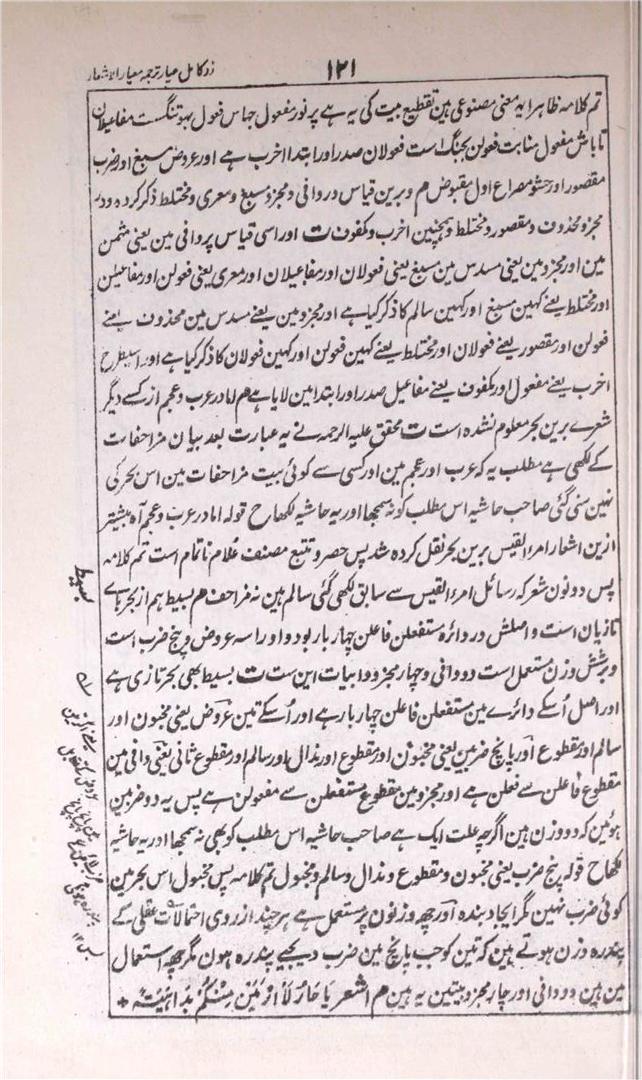 ۱۲۱
زر کامل عیار ترجمہ معیار الاشعار
تم کلامہ ظاہرا یہ معنی مصنوعی ہین تقطیع بیت کی یہ ہے پر نور مفعول جہاس فعول بہو تنگست مفاعیلان
تابانش مفعول منابت فعولن بجنگ است فعولان صدر اور ابتدا اخرب ہے اور عروض مسبغ اور ضرب
مقصور اور حشو مصراع اول مقبوض م و برین قیاس در وافی و مجزو مسبغ و معری و مختلط ذکر کردہ و در
مجزو محذوف و مقصور و مختلط و ہمچنین اخرب و مکفوف ت اور اسی قیاس پر وافی مین یعنی مثمن
مین اور مجزو مین یعنی مسدس مین مسبغ یعنی فعولان اور مفاعیلان اور معری یعنی فعولن اور مفاعیلن
اور مختلط یعنے کہین مسبغ اور کہین سالم کا ذکر کیا ہے اور مجزو مین یعنے مسدس مین محذوف یعنے
فعولن اور مقصور یعنے فعولان اور مختلط یعنے کہین فعولن اور کہین فعولان کا ذکر کیا ہے اور اسیطرح
اخرب یعنے مفعول اور مکفوف یعنے مفاعیل صدر اور ابتدا مین لایا ہے م اما در عرب و عجم از کسے دیگر
شعرے برین بحر معلوم نشدہ است ت محقق علیہ الرحمہ نے یہ عبارت بعد بیان مزاحفات
کے لکھی ہے مطلب یہ کہ عرب اور عجم مین اور کسی سے کوئی بیت مزاحفات مین اس بحر کی
نہین سنی گئی صاحب حاشیہ اس مطلب کو نہ سمجھا اور یہ حاشیہ لکھا ح قولہ اما در عرب و عجم آہ بیشتر
ازین اشعار امرء القیس برین بحر نقل کردہ شد پس حصر و تتبع مصنف علام ناتمام است تم کلامہ
پس دونون شعر کہ رسائل امرء القیس سے سابق لکھی گئی سالم ہین نہ مزاحف م بسیط ہم از بحرہاے
بسیط
تازیان است و اصلش در دائرہ مستفعلن فاعلن چہار بار بود و او را سہ عروض و پنج ضرب است
و بر شش وزن مستعمل است دو وافی و چہار مجزو و ابیات این ست ت بسیط بھی بحر تازی ہے
اور اصل اُسکے دائرے مین مستفعلن فاعلن چہار بار ہے اور اُسکے تین عروض یعنی مخبون اور
سالم اور مقطوع اور پانچ ضربین یعنی مخبون اور مقطوع اور مذال اور سالم اور مقطوع ثانی یعنی وافی مین
مقطوع فاعلن سے فعلن ہے اور مجزو مین مقطوع مستفعلن سے مفعولن ہے پس یہ دو ضربین
ہوئین کہ دو وزن ہین اگرچہ علت ایک ہے صاحب حاشیہ اس مطلب کو بھی نہ سمجھا اور یہ حاشیہ
لکھا ح قولہ پنج ضرب یعنی مخبون و مقطوع و مذال و سالم و مخبول تم کلامہ پس مخبول اس بحر مین
کوئی ضرب نہین مگر ایجاد بندہ اور چھ وزنون پر مستعمل ہے ہر چند از روی احتمالات عقلی کے
پندرہ وزن ہوتے ہین کہ تین کو جب پانچ مین ضرب دیجیے پندرہ ہون مگر چھہ استعمال
مین ہین دو وافی اور چار مجزو بیتین یہ ہین م الشعر یَا حَارُ لَا اُرْمَیَنْ مِنْکُمْ بِدَاهِیَةٍ